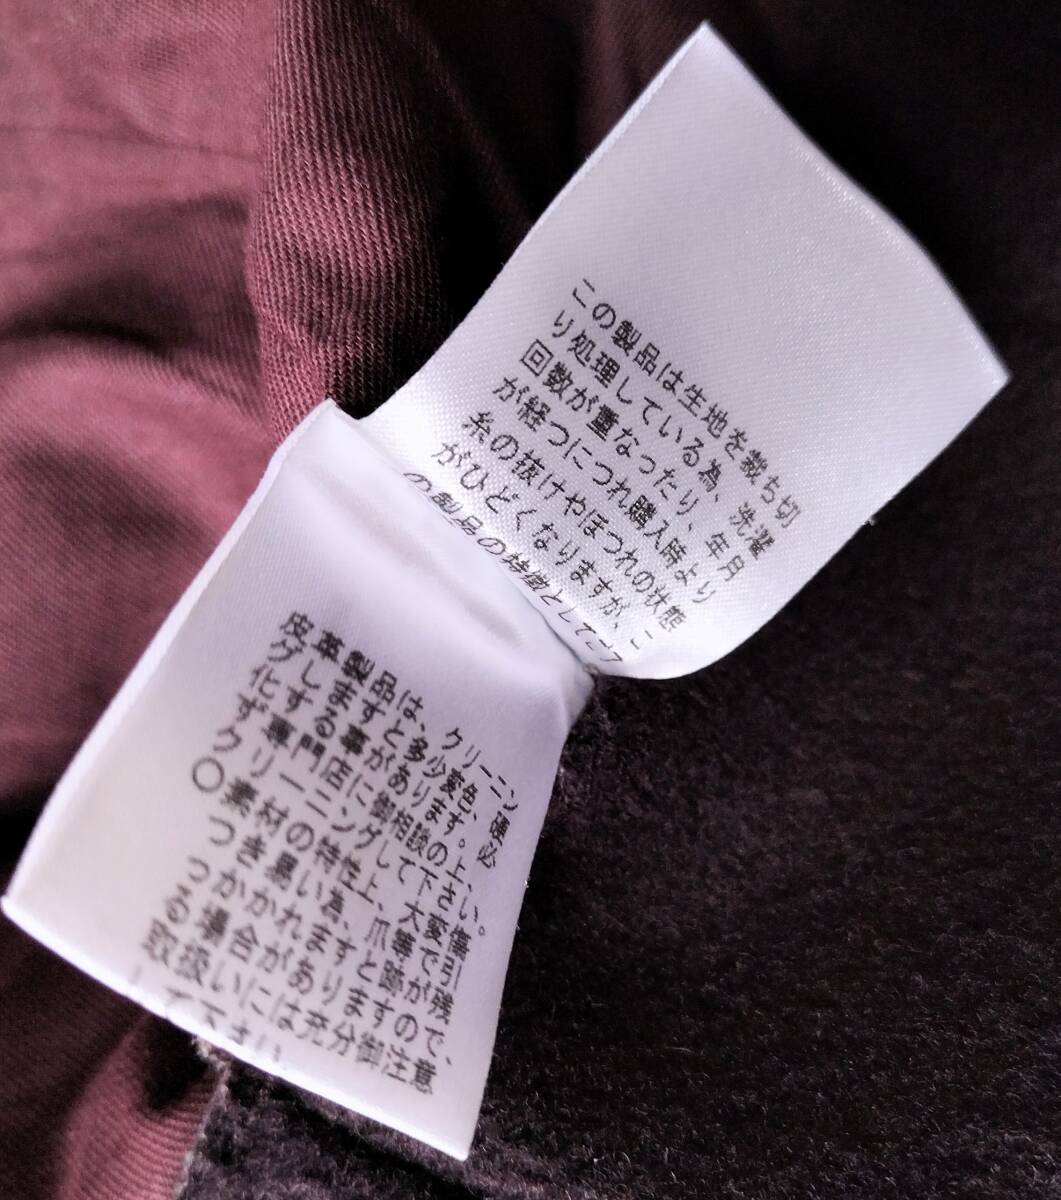 この製品は生地を裁ち切
り処理している為、洗濯
回数が重なったり、年月
が経つにつれ購入時より
糸の抜けやほつれの状態
がひどくなりますが、こ
の製品の特徴として
皮革製品は、クリーニン
グしますと多少変色、硬
化する事があります。必
ず専門店に御相談の上、
クリーニングして下さい。
〇素材の特性上、大変傷
つき易い為、爪等で引
っかかれますと跡が残
る場合がありますので、
取扱いには充分御注意
して下さい